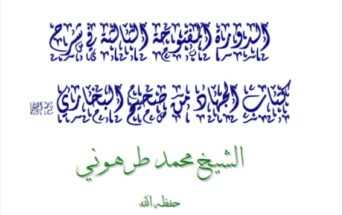 الدورة المفتوحة الثالثة في شرح
كتاب الجهاد من صحيح البخاري رحمه الله
الشيخ محمد طرهوني
حفظه الله